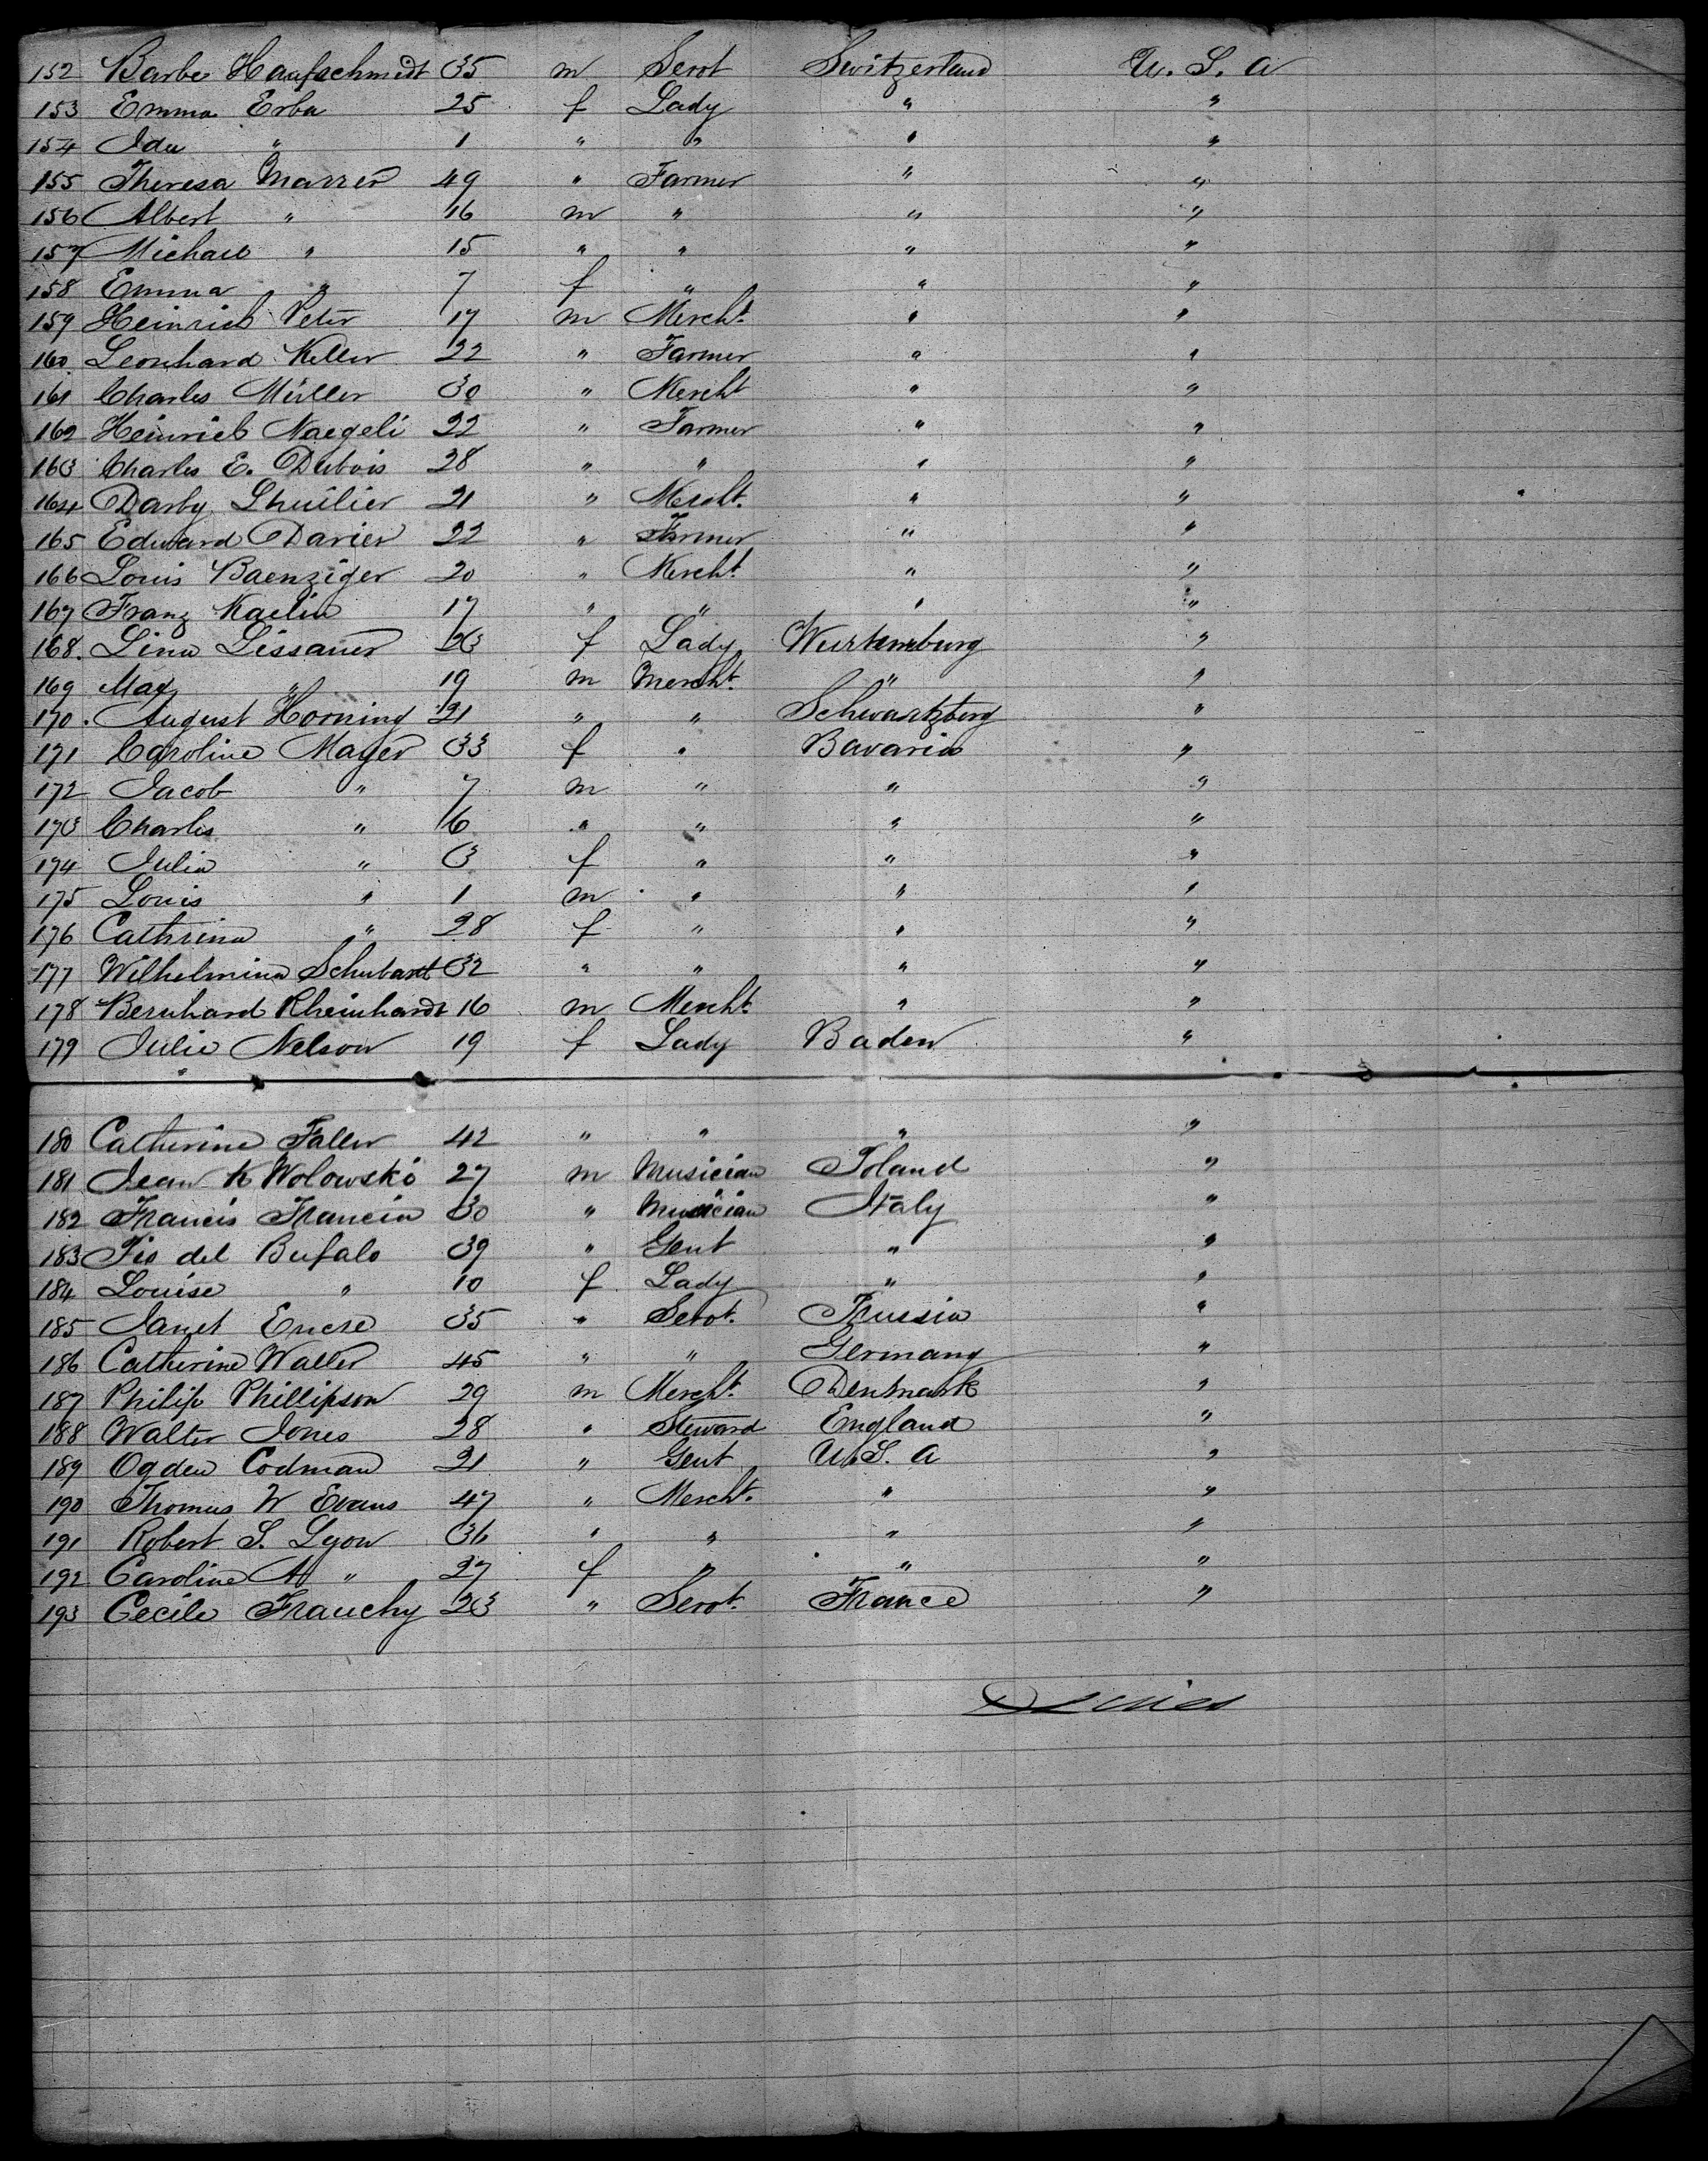 152 Barbe Haufschmidt 35 m Servt Switzerland U. S. A
153 Emma Erba 25 f Lady " "
154 Ida " 1 " " " "
155 Theresa Marrer 49 " Farmer " "
156 Albert " 16 m " " "
157 Michael " 15 " " " "
158 Emma " 7 f " " "
159 Heinrich Peter 17 m Mercht. " "
160. Leonhard Keller 22 " Farmer " "
161 Charles Müller 30 " Mercht " "
162 Heinrich Naegeli 22 " Farmer " "
163 Charles E. Dubois 28 " " " "
164 Darby Lhuilier 21 " Mercht. " "
165 Edward Darier 22 " Farmer " "
166 Louis Baenziger 20 " Mercht. " "
167 Franz Kaelin 17 " " " "
168. Lina Lissauer 23 f Lady Wurtemburg "
169 Max " 19 m Mercht. " "
170. August Horning 21 " " Schwartzberg "
171 Caroline Mayer 33 f " Bavaria "
172 Jacob " 7 m " " "
173 Charles " 6 " " " "
174 Julia " 3 f " " "
175 Louis " 1 m " " "
176 Cathrina " 28 f " " "
177 Wilhelmina Schubart 32 " " " "
178 Bernhard Rheinhardt 16 m Mercht. " "
179 Julie Nelson 19 f Lady Baden "
180 Catherine Faller 42 " " " "
181 Jean K Wolowski 27 m Musician Poland "
182 Francis Francia 30 " Musician Italy "
183 Pio del Bufalo 39 " Gent " "
184 Louise " 10 f Lady " "
185 Janet Encre 35 " Servt. Prussia "
186 Catherine Walter 45 " " Germany "
187 Philip Phillipson 29 m Mercht. Denmark "
188 Walter Jones 28 " Steward England "
189 Ogden Codman 21 " Gent U.S. A "
190 Thomas W Evans 47 " Mercht. " "
191 Robert S. Lyon 36 " " " "
192 Caroline A " 27 f " " "
193 Cecile Frauchy 23 " Servt. France "